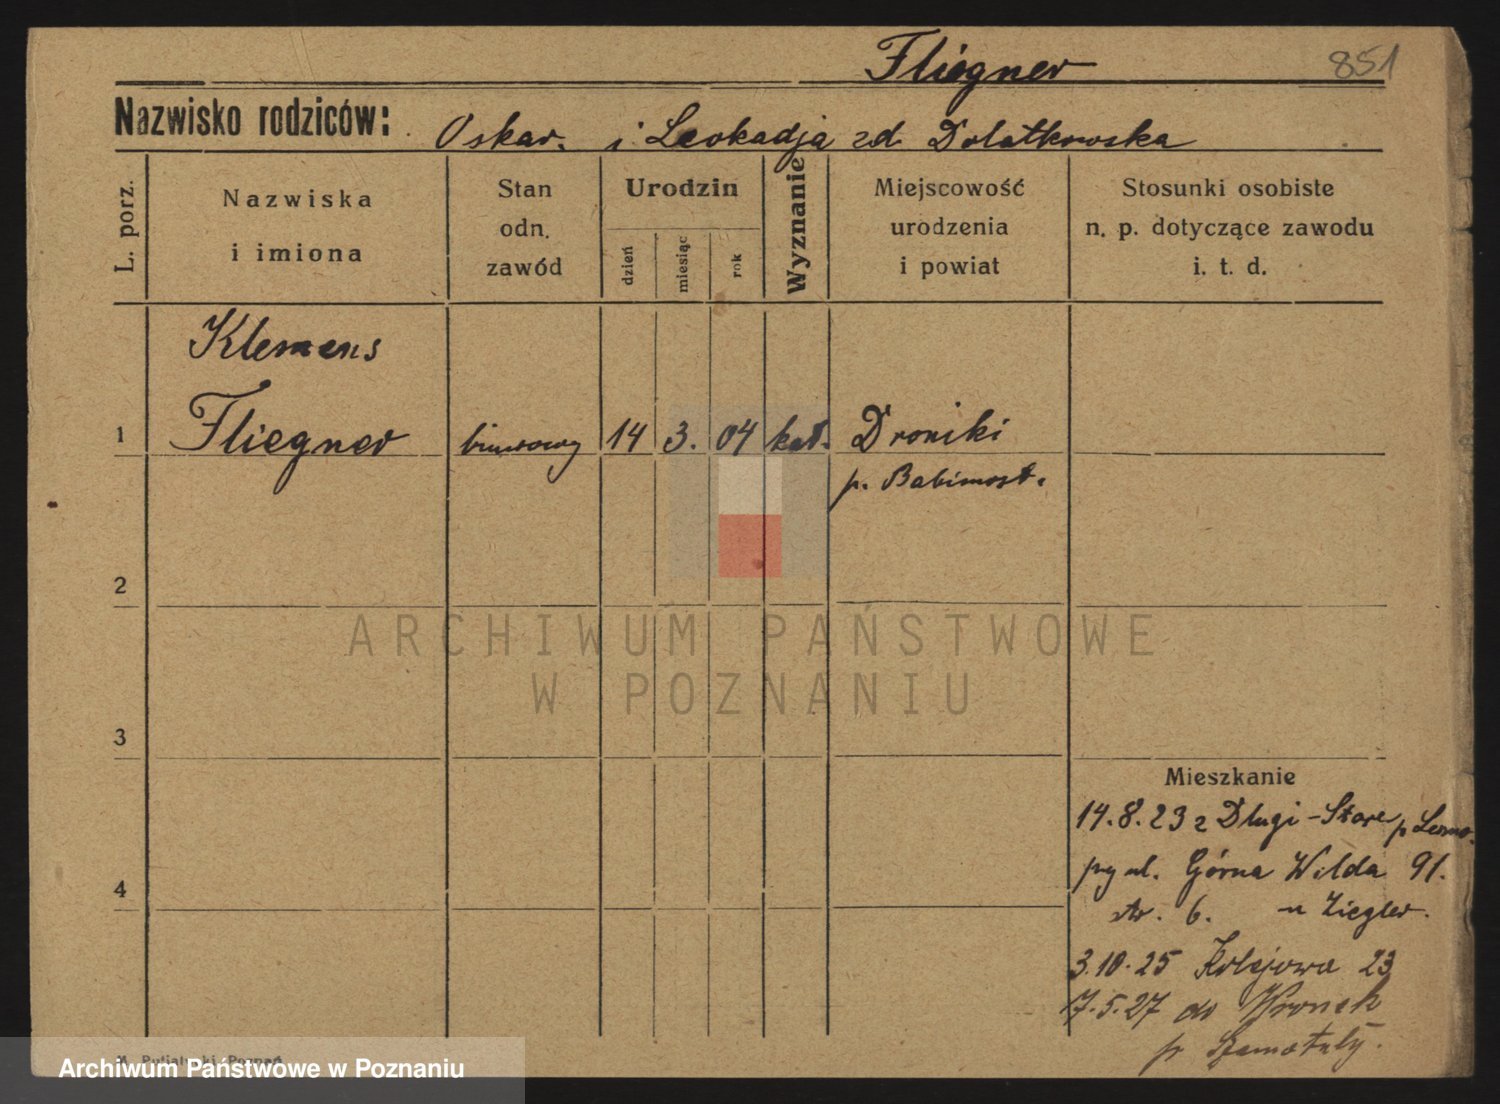 Fliegner 851
Nazwisko rodziców: Oskar. i Leokadja zd Dolatkowska
L. porz.
Nazwiska
i imiona
Stan
odn.
zawód
Urodzin
dzień
miesiąc
rok
Wyznanie
Miejscowość
urodzenia
i powiat
Stosunki osobiste
n. p. dotyczące zawodu
i. t. d.
Klemens
1 Fliegner biurowy 14 3. 04 kat. Droniki
p. Babimost.
2
ARCHIWUM PAŃSTWOWE
W POZNANIU
3
Mieszkanie
14.8.23 z Długi-Stare p
4
ul. Górna Wilda 91.
str. 6. u Ziegler.
3.10.25 Kolejowa 23
7.5.27 do Wronek
p Szamotuły.
Poznań
Archiwum Państwowe w Poznaniu